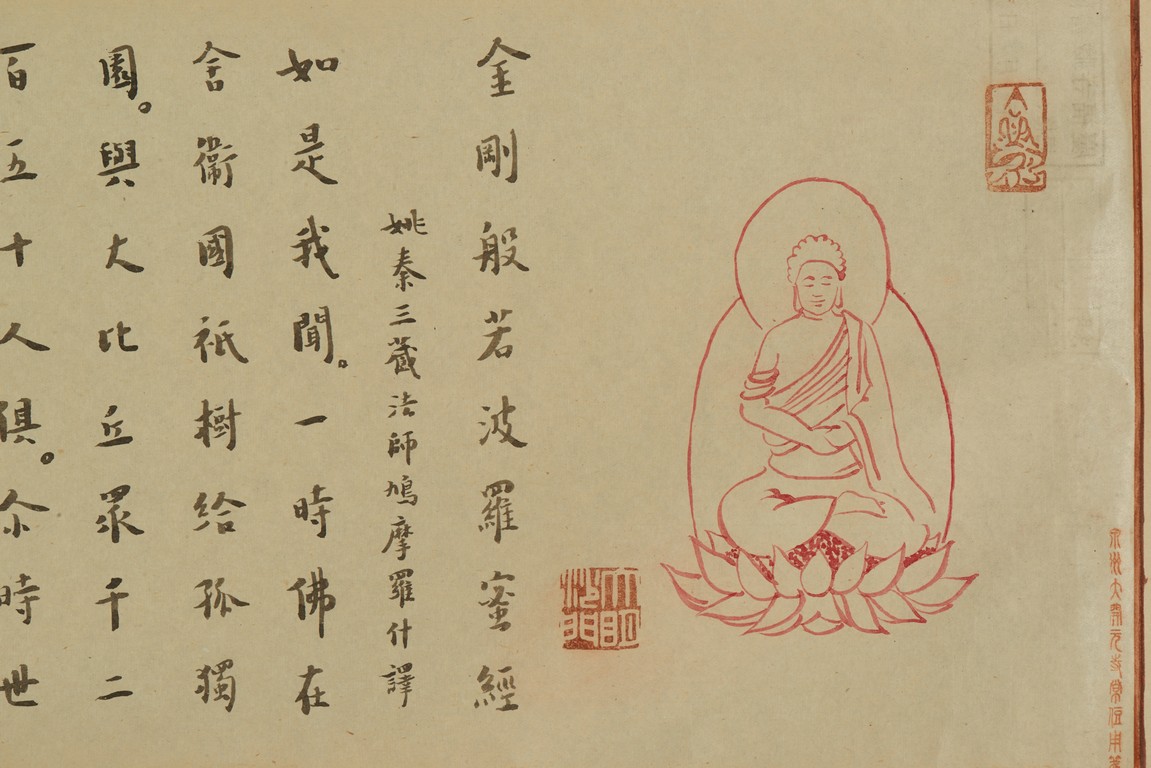 金剛般若波羅蜜經
姚秦三藏法師鳩摩羅什譯
如是我聞。一時佛在
舍衛國祇樹給孤獨
園。與大比丘眾千二
百五十人俱。尒時世